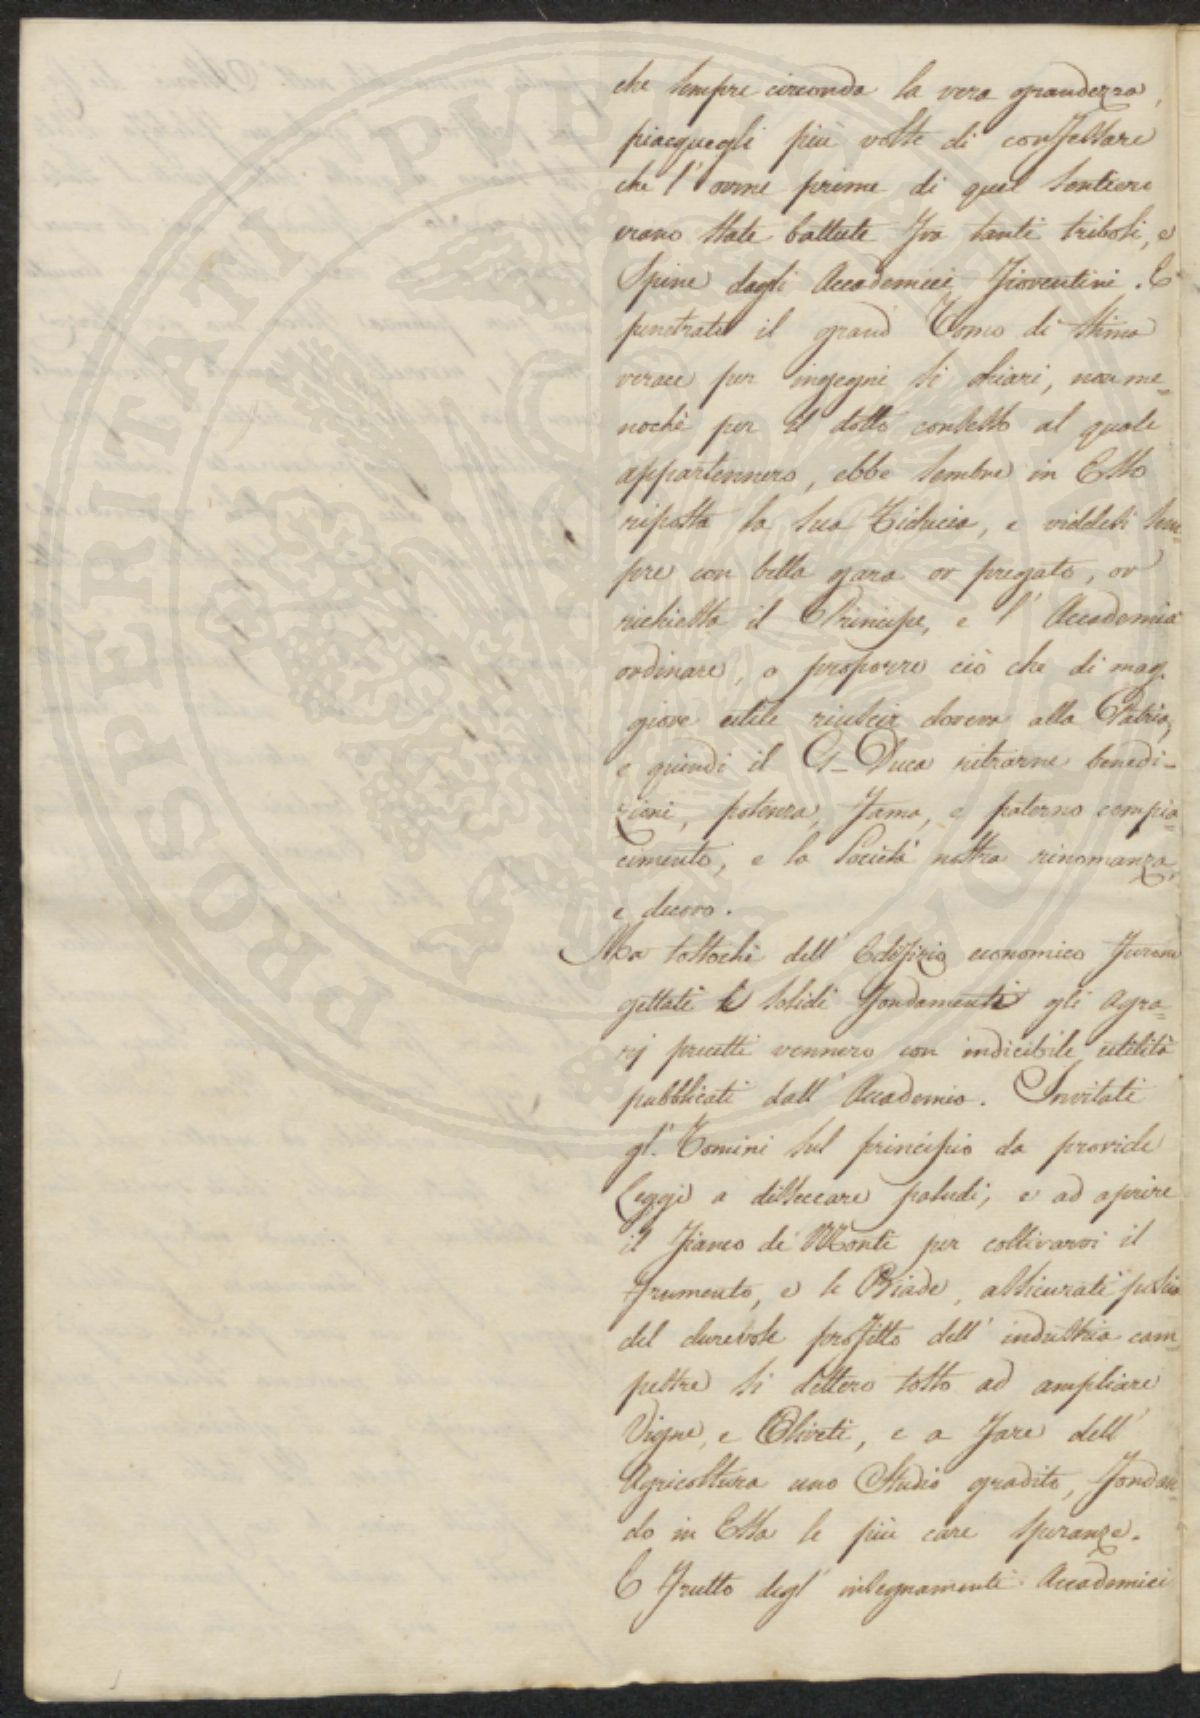 che sempre circonda la vera grandezza,
piacquegli più volte di confessare
che l'orme prime di quel sentiero
erano state battute fra tanti triboli, e
Spine dagli Accademici Fiorentini. E
penetrato il grand' Uomo di stima
verace per ingegni sì chiari, non me=
nochè per il dotto consesso al quale
appartennero, ebbe sempre in Esso
riposta la sua Fiducia, e viddesi sem=
pre con bella gara or pregato, or
richiesto il Principe, e l'Accademia
ordinare, o proporre ciò che di mag=
giore utile riuscir doveva alla Patria,
e quindi il G- Duca ritrarne benedi-
zioni, potenza, fama, e paterno compia=
cimento, e la Società nostra rinomanza,
e decoro.
Ma tostochè dell'Edifizio economico furono
gettati i solidi fondamenti gli agra=
rj precetti vennero con indicibile utilità
pubblicati dall'Accademia. Invitati
gl'Uomini sul principio da provide
Leggi a disseccare paludi, e ad aprire
il fianco de' Monti per coltivarvi il
frumento, e le Biade, assicurati poscia
del durevole profitto dell'industria cam=
pestre si dettero tosto ad ampliare
Vigne, e Oliveti, e a fare dell'
Agricoltura uno Studio gradito, fondan=
do in Essa le più care speranze.
E frutto degl'insegnamenti Accademici
PROSPERITATI PUBLICAE